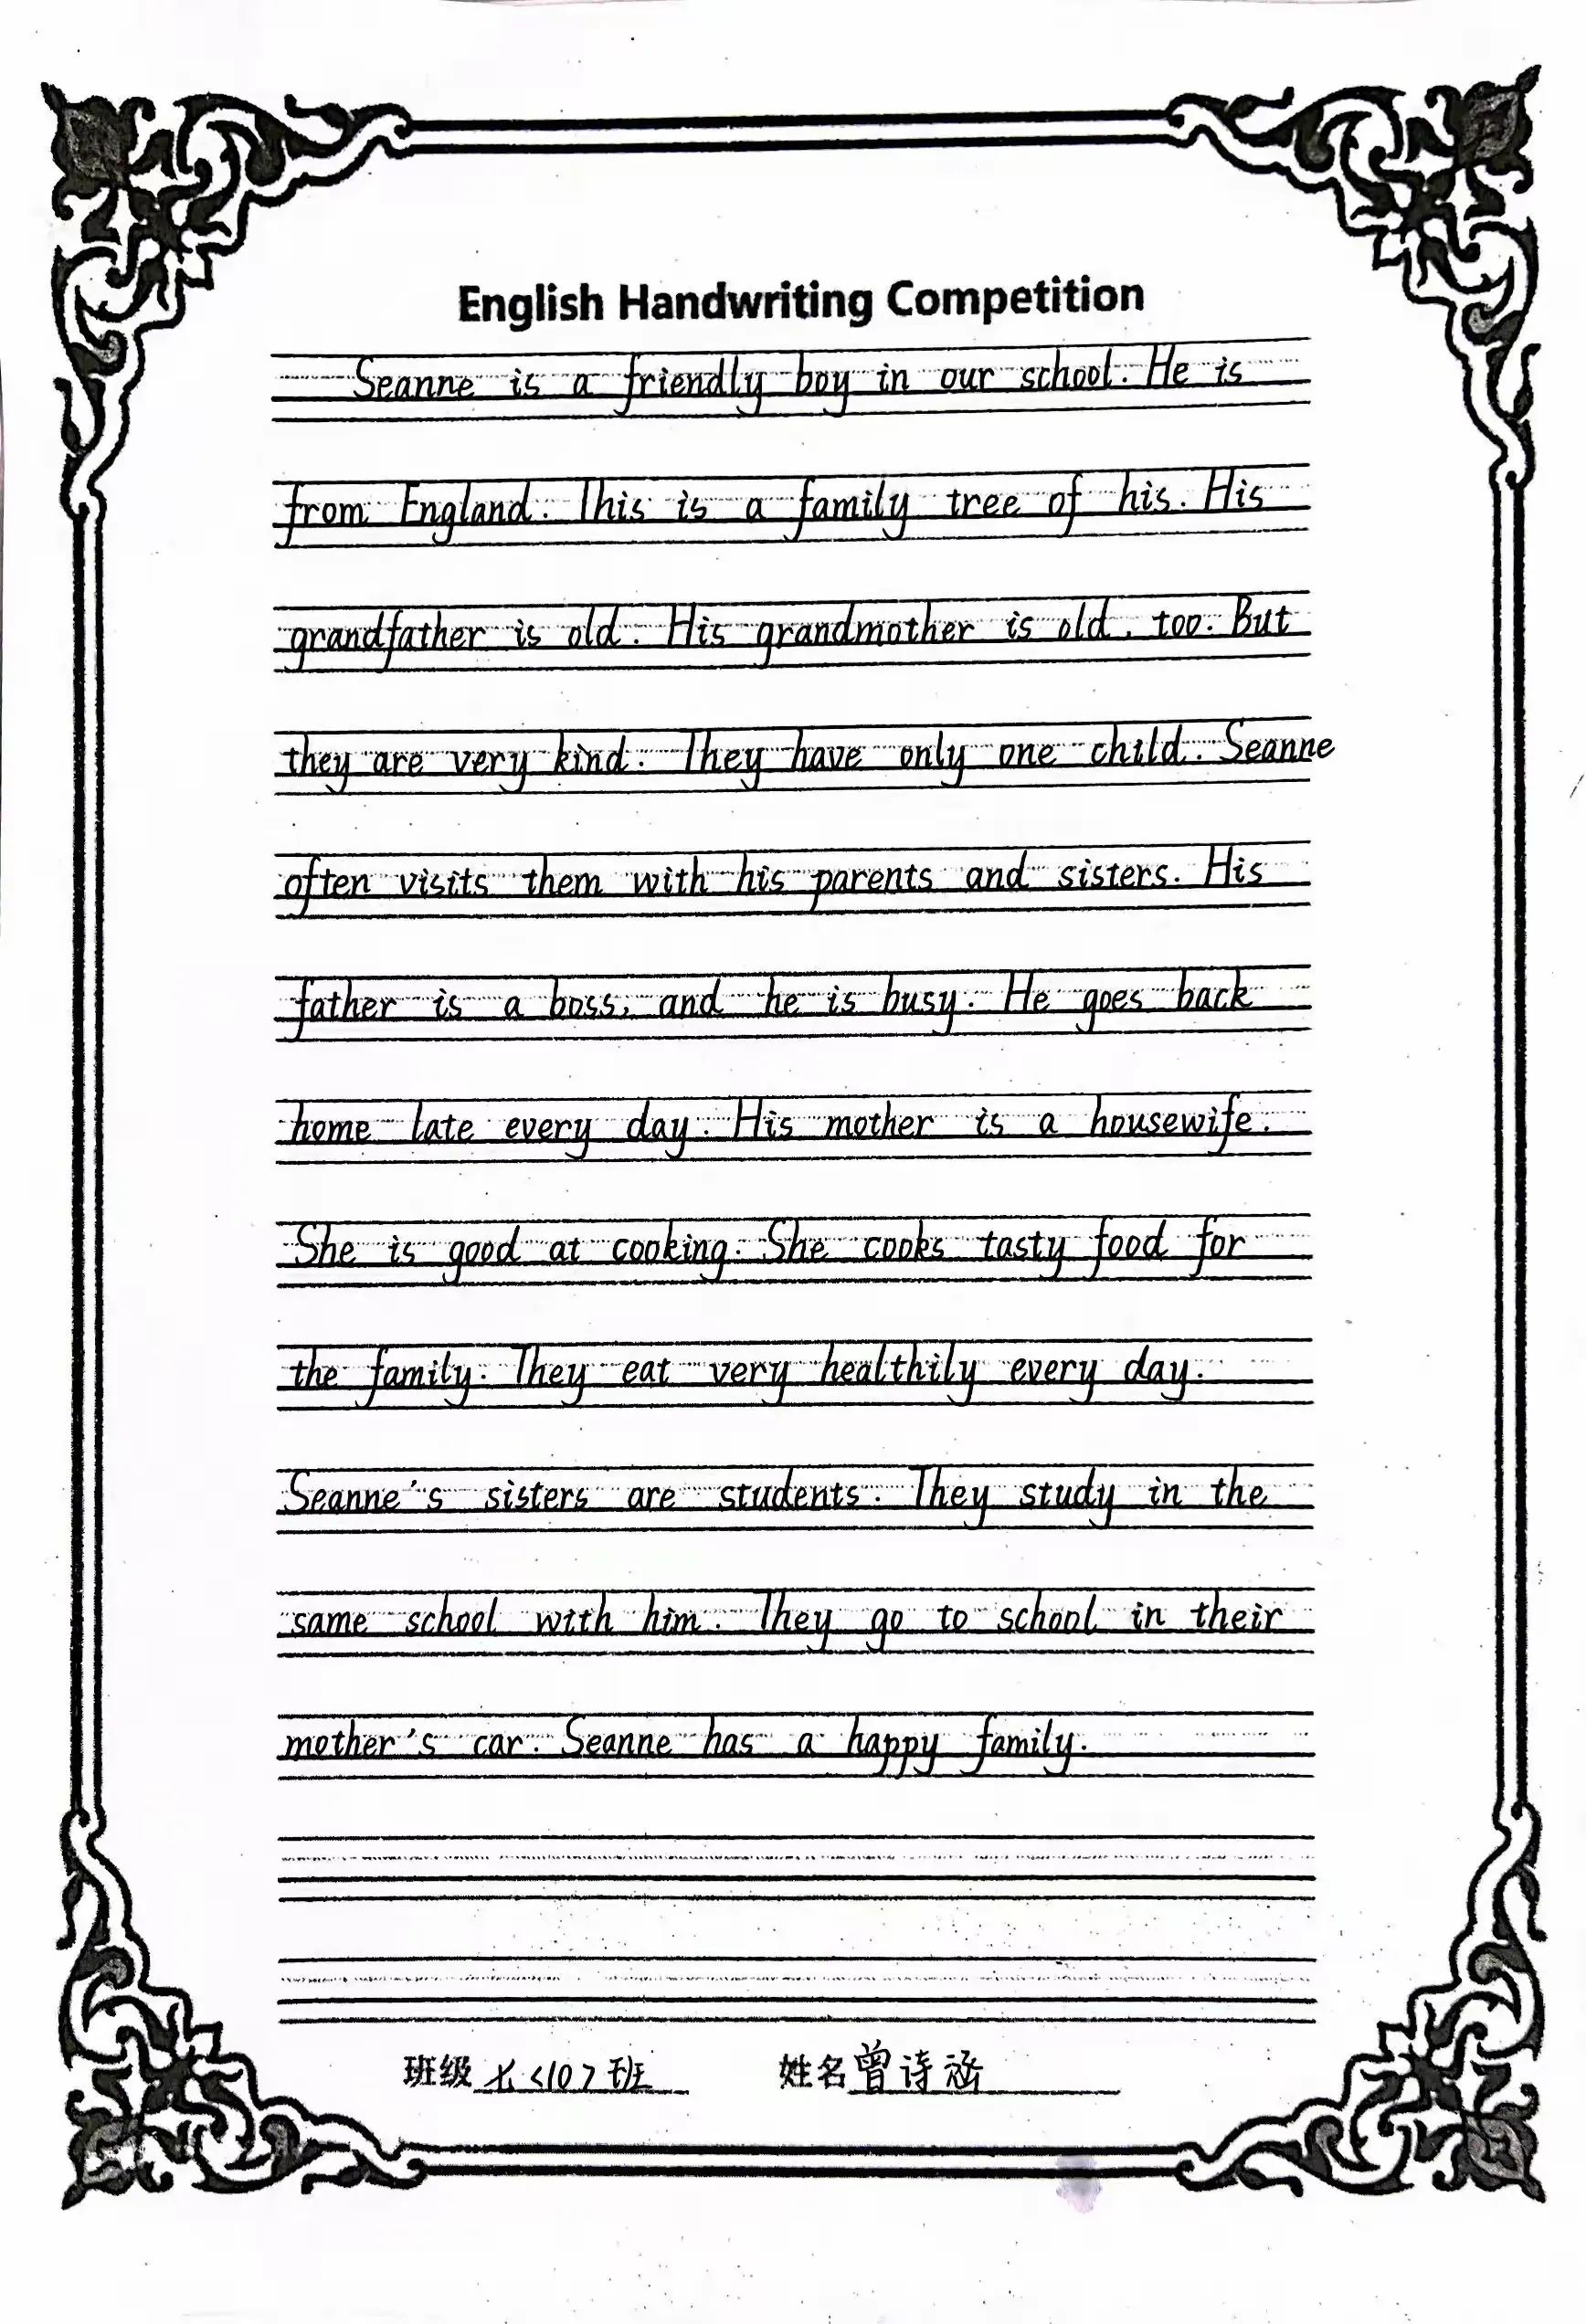 English Handwriting Competition
Seanne is a friendly boy in our school. He is
from England. This is a family tree of his. His
grandfather is old. His grandmother is old, too. But
they are very kind. They have only one child. Seanne
often visits them with his parents and sisters. His
father is a boss, and he is busy. He goes back
home late every day. His mother is a housewife.
She is good at cooking. She cooks tasty food for
the family. They eat very healthily every day.
Seanne's sisters are students. They study in the
same school with him. They go to school in their
mother's car. Seanne has a happy family.
班级 七<10>班 姓名 曾诗涵